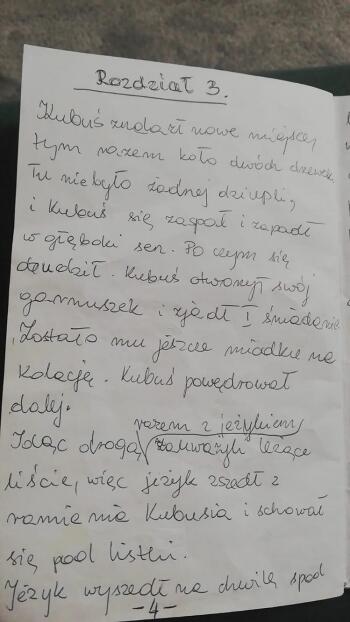 Rozdział 3.
Kubuś znalazł nowe miejsce,
tym razem koło dwóch drzewek.
Tu nie było żadnej dziupli,
i Kubuś się zaspał i zapadł
w głęboki sen. Po czym się
obudził. Kubuś otworzył swój
garnuszek i zjadł I śniadanie
Zostało mu jeszcze miodku na
kolację. Kubuś powędrował
dalej.
razem z jeżykiem
Idąc drogą zauważyli leżące
liście, więc jeżyk zszedł z
ramienia Kubusia i schował
się pod listki.
Jeżyk wyszedł na chwilę spod
-4-